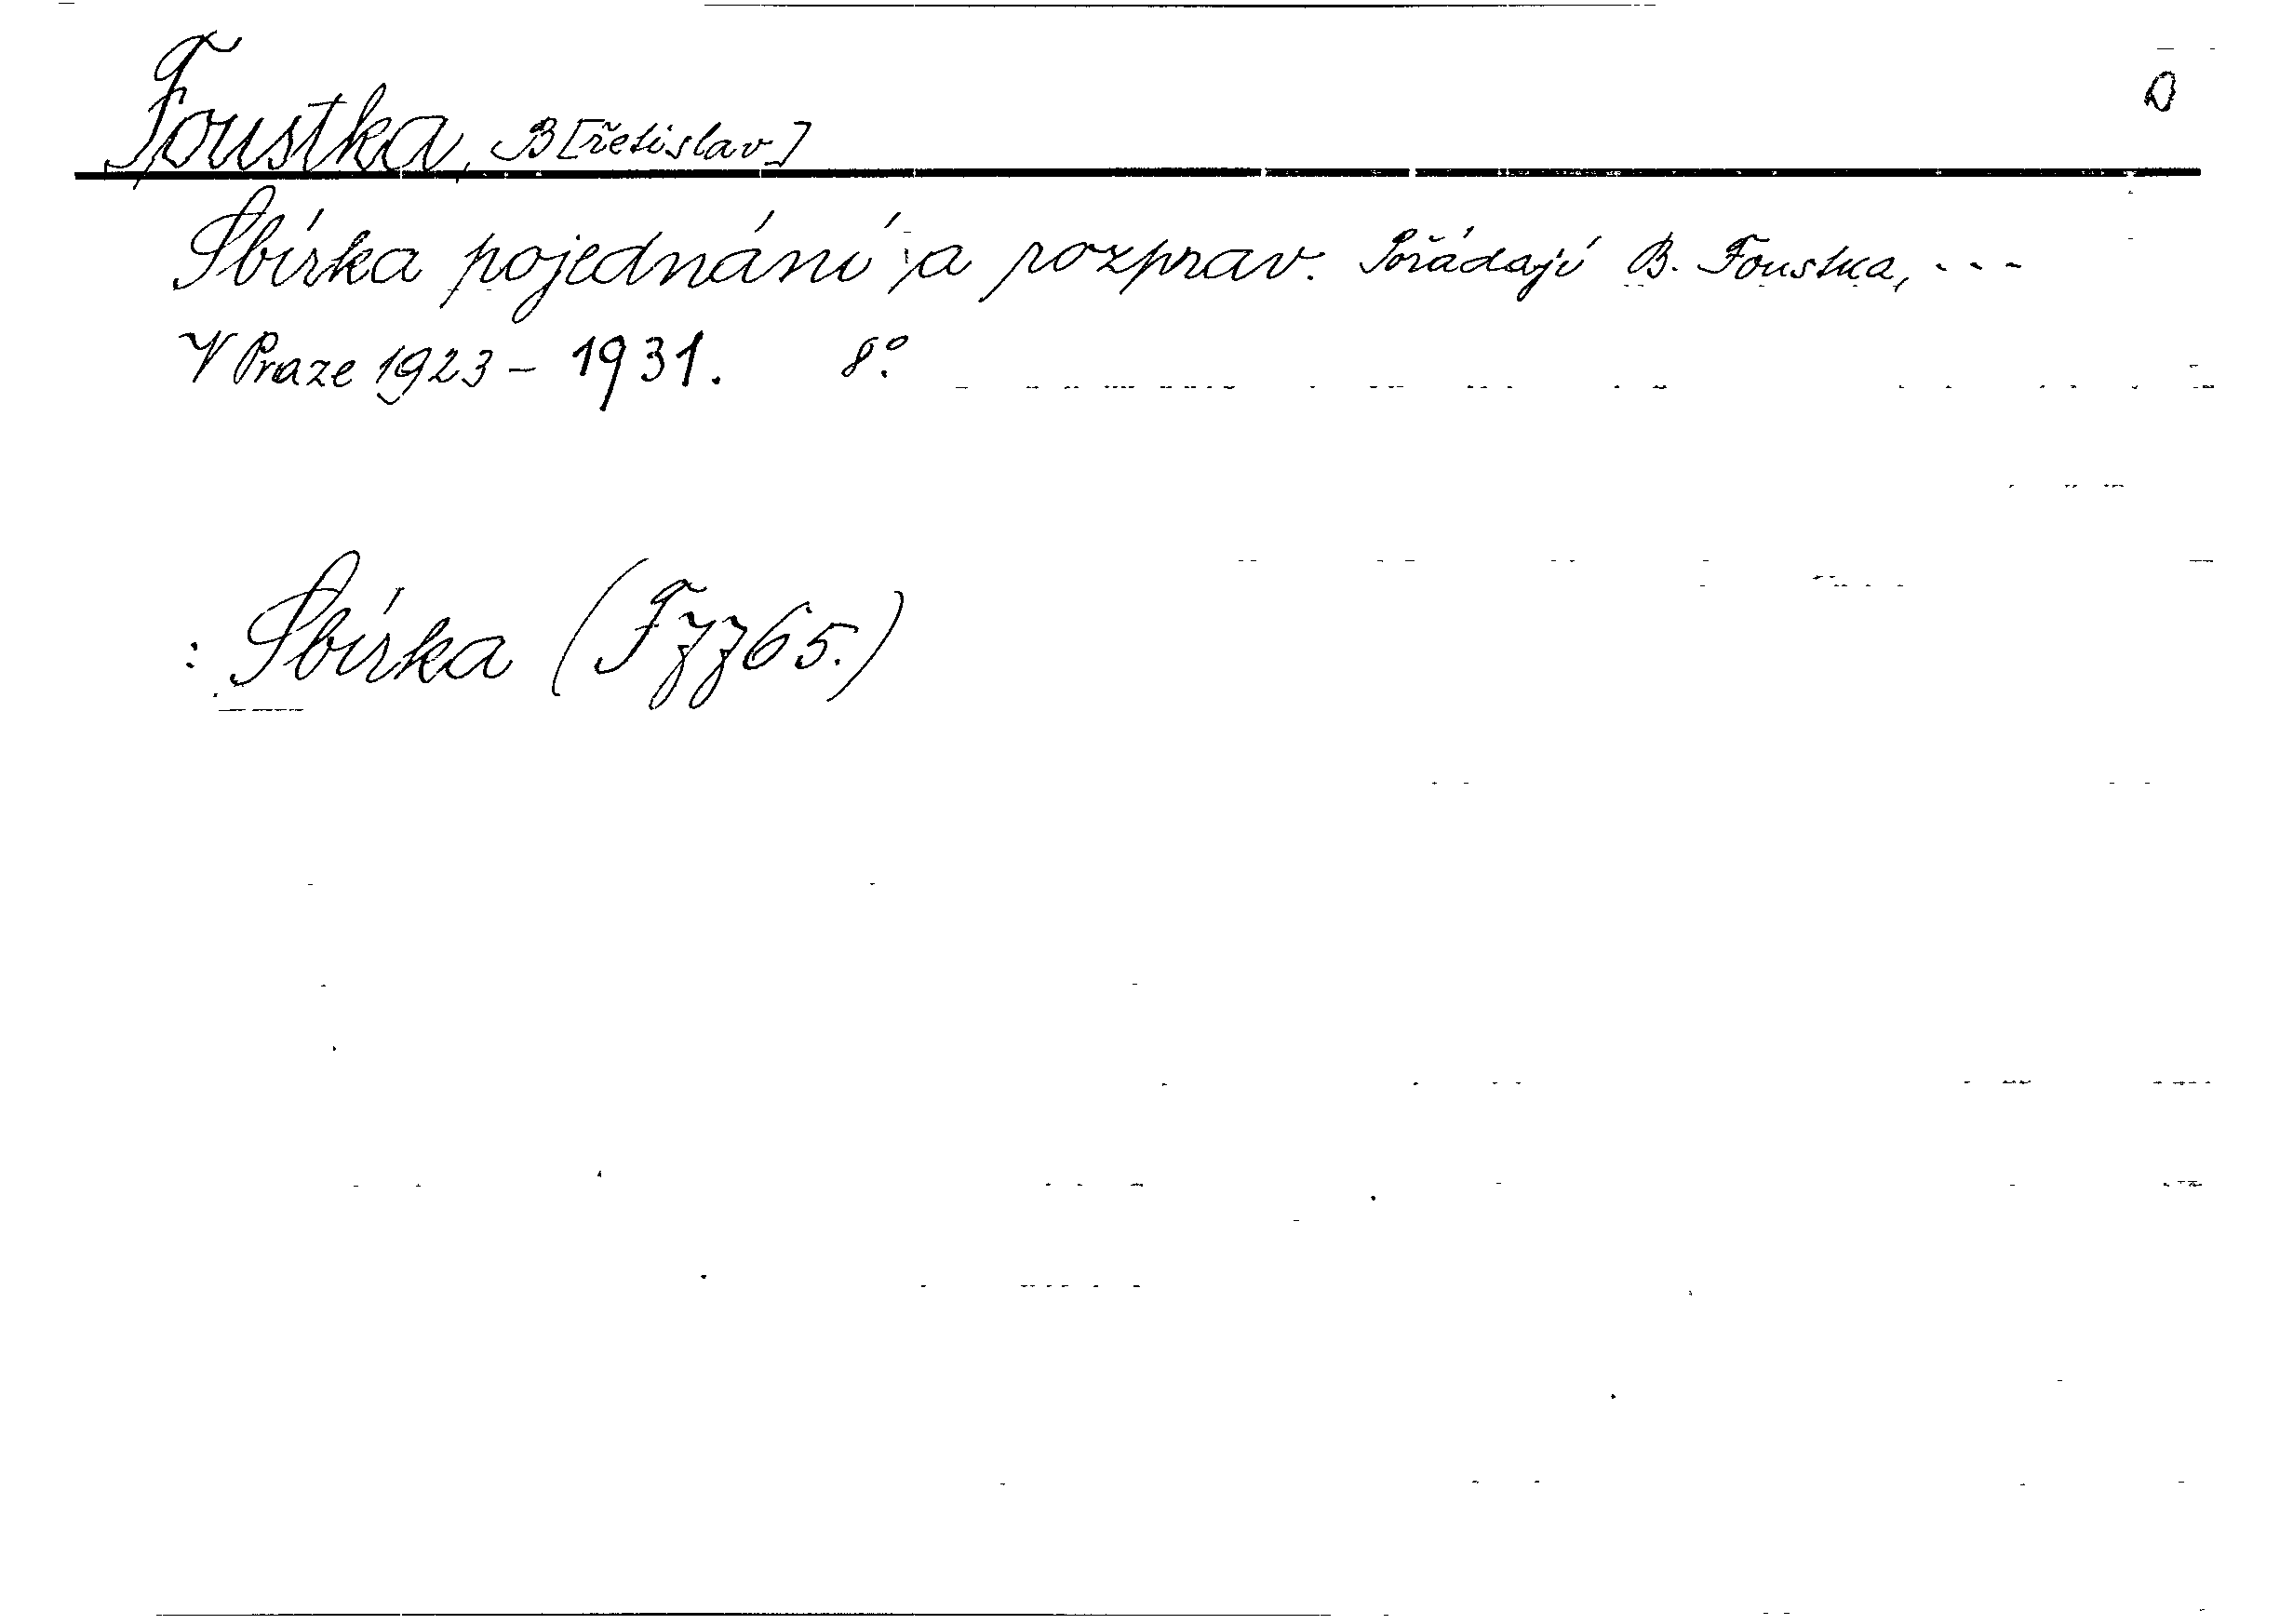 D
Foustka, B[řetislav]
Sbírka pojednání a rozprav. Pořádají B. Foustka, ---
V Praze 1923 - 1931. 8°.
: Sbírka (Fzz65.)